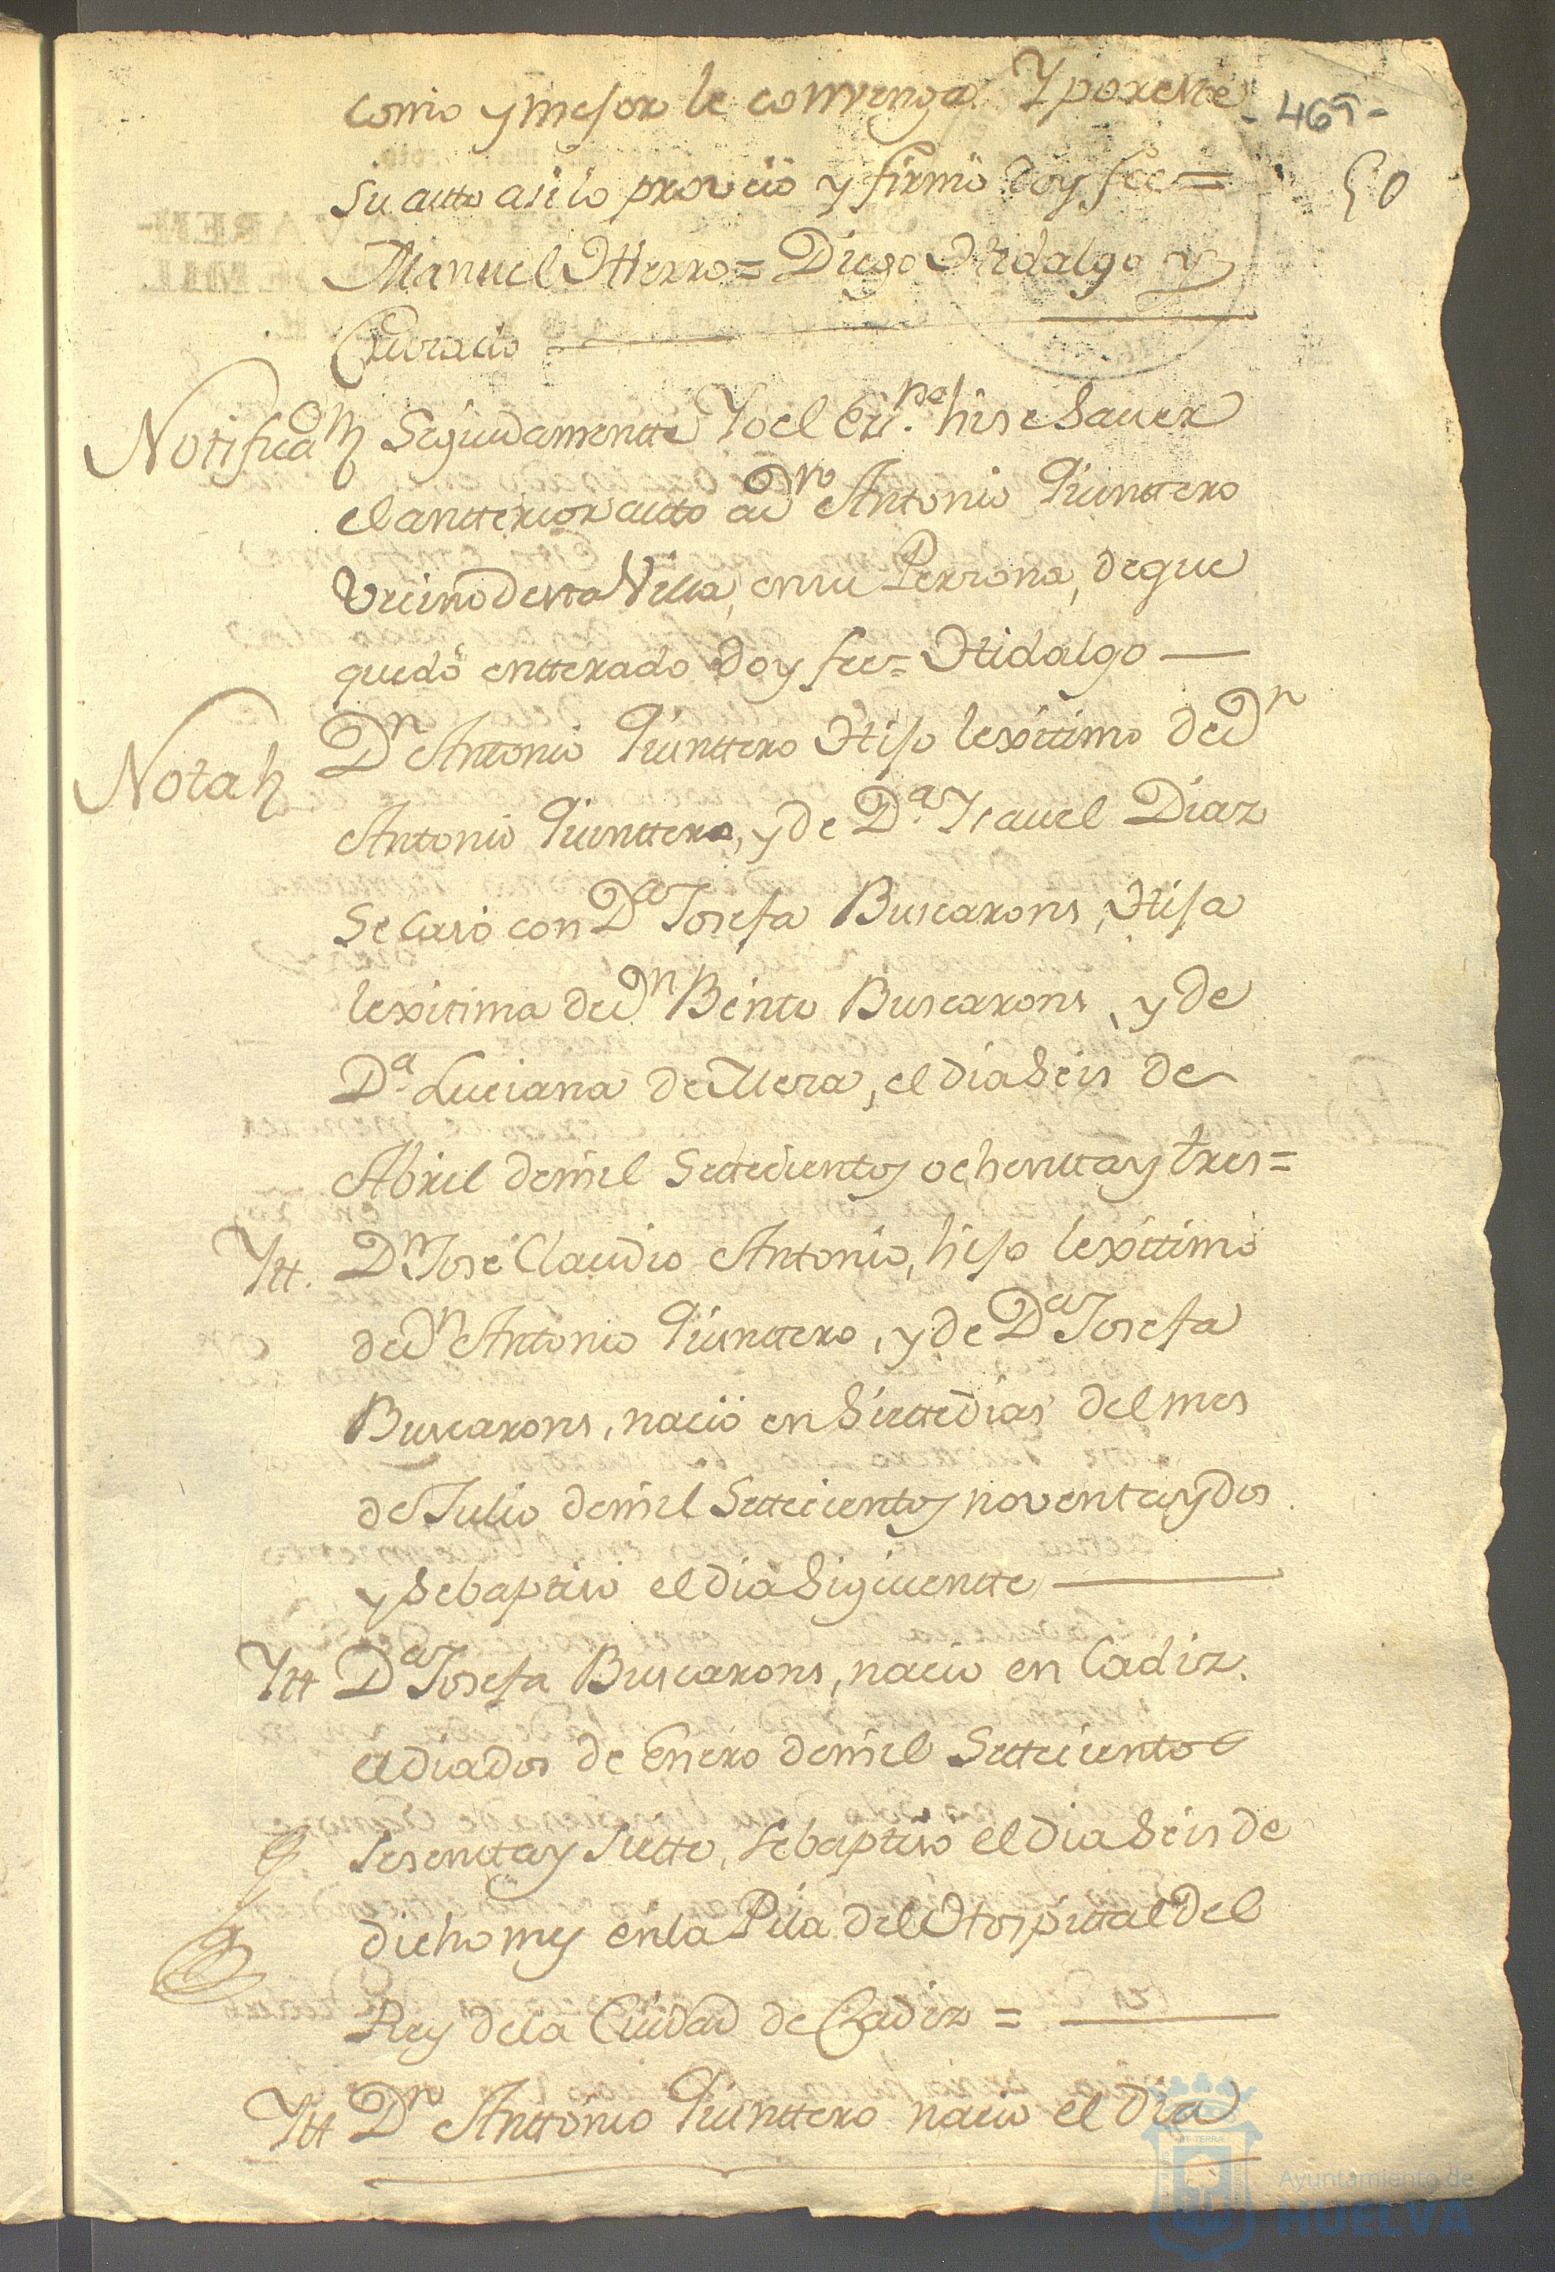 como y mejor le convenga. Y por este - 469 -
su auto asi lo proveió y firmó doy fee = 50
Manuel Hierro = Diego Hidalgo y
Cruzado
Notificaon Seguidamentte Yo el Esno. hise saver
el antterior autto a Dn Antonio Quinttero
Vecino de esta Villa, en su Persona, de que
quedó entterado doy fee = Hidalgo
Nota Dn Antonio Quinttero Hijo lexitimo de Dn
Antonio Quinttero, y de Da. Ysavel Diaz
se casó con Da Josefa Buscarons, Hija
lexitima de Dn Bento Buscarons, y de
Da. Luciana de Mera, el dia seis de
Abril de mil settecientos ochentta y tres =
Ytt. Dn José Claudio Antonio, hijo lexittimo
de Dn Antonio Quinttero, y de Da Josefa
Buscarons, nació en siette dias del mes
de Julio de mil settecientos noventa y dos
y se baptisó el dia siguientte
Ytt Da Josefa Buscarons, nacio en Cadiz
el dia dos de Enero de mil settecientos
sesentta y siette, se baptisó el dia seis de
dicho mes en la Pila del Hospittal del
Rey de la Ciudad de Cadiz =
Ytt Dn Anttonio Quinttero nacio el dia
Ayuntamiento de
HUELVA